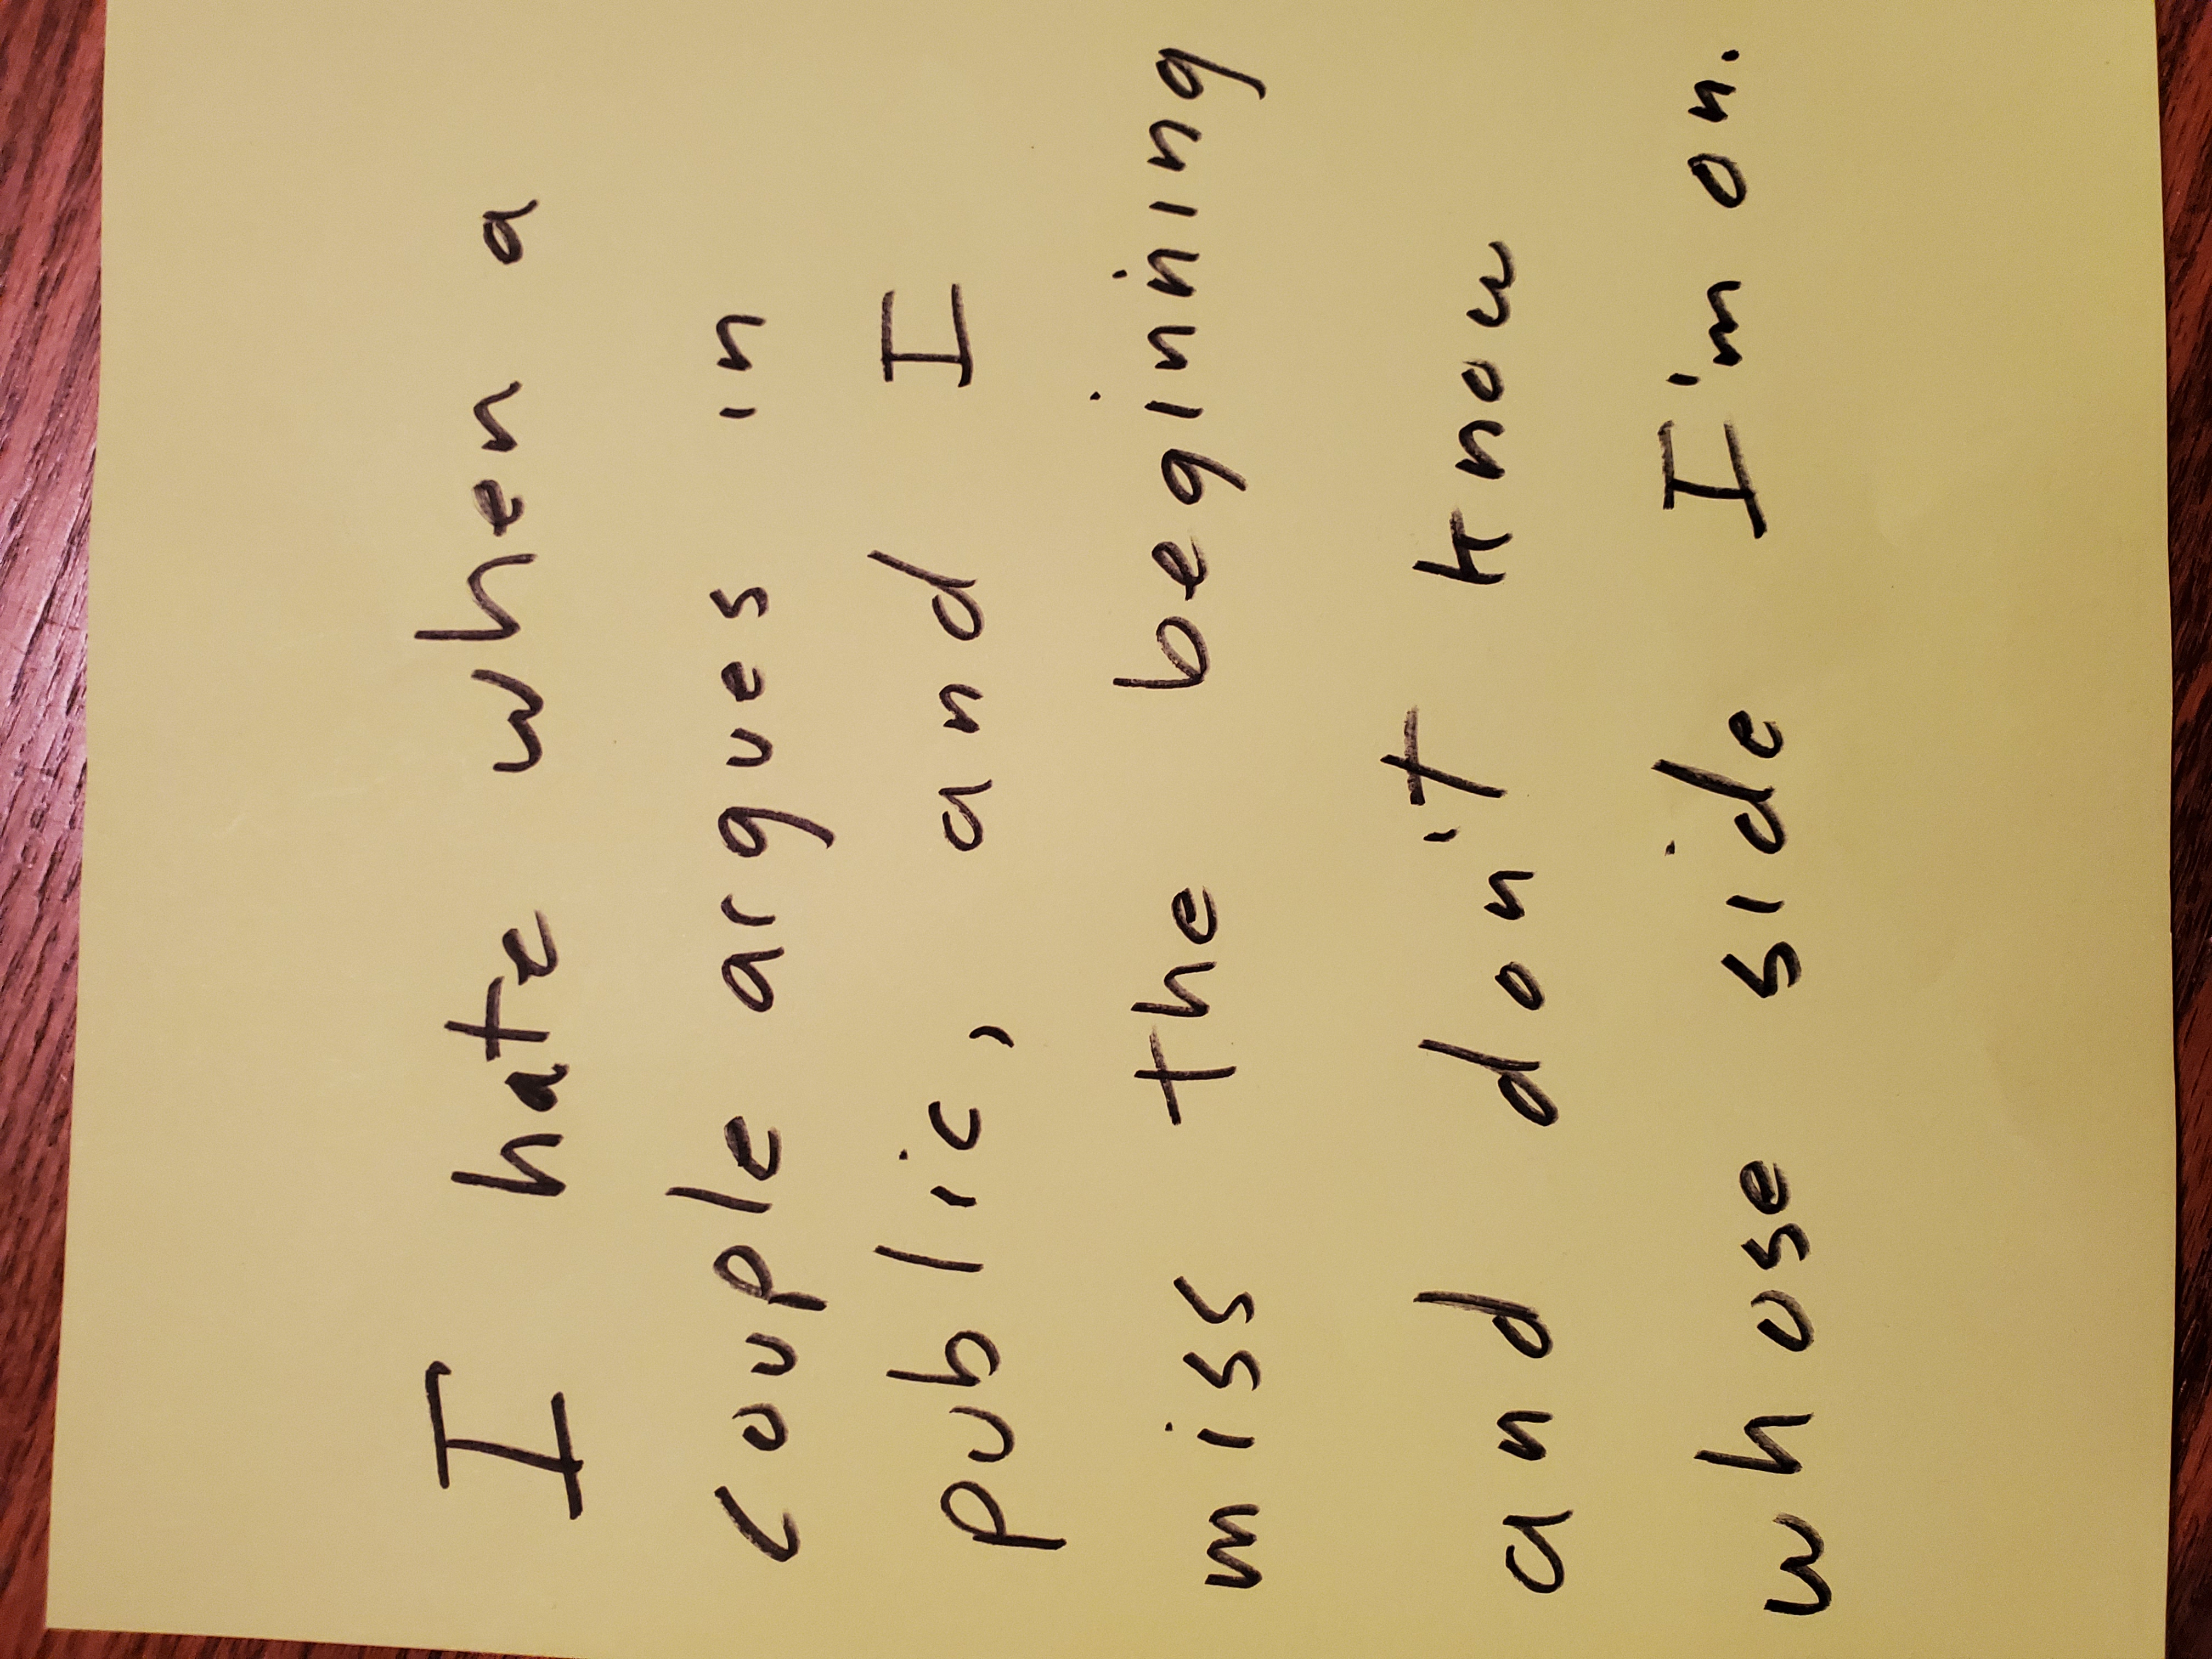 I hate when a
couple argues in
public, and I
miss the beginining
and don't know
whose side I'm on.